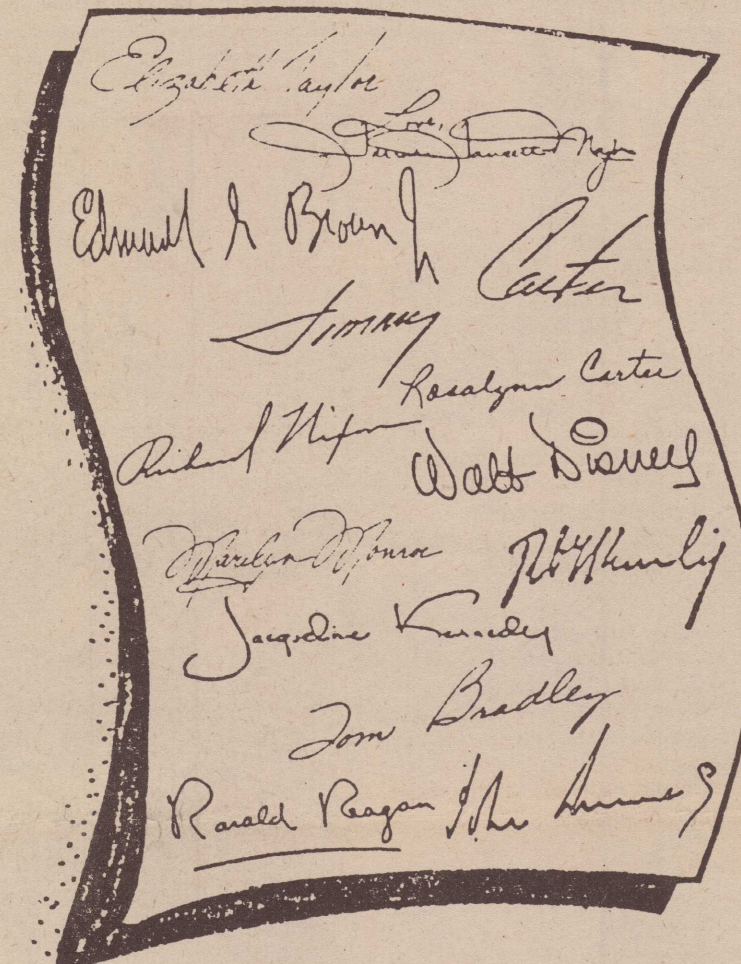 Elizabeth Taylor
Love,
Farrah Fawcett Majors
Edmund G Brown Jr
Jimmy Carter
Rosalynn Carter
Richard Nixon
Walt Disney
Marilyn Monroe
Jacqueline Kennedy
Tom Bradley
Ronald Reagan John